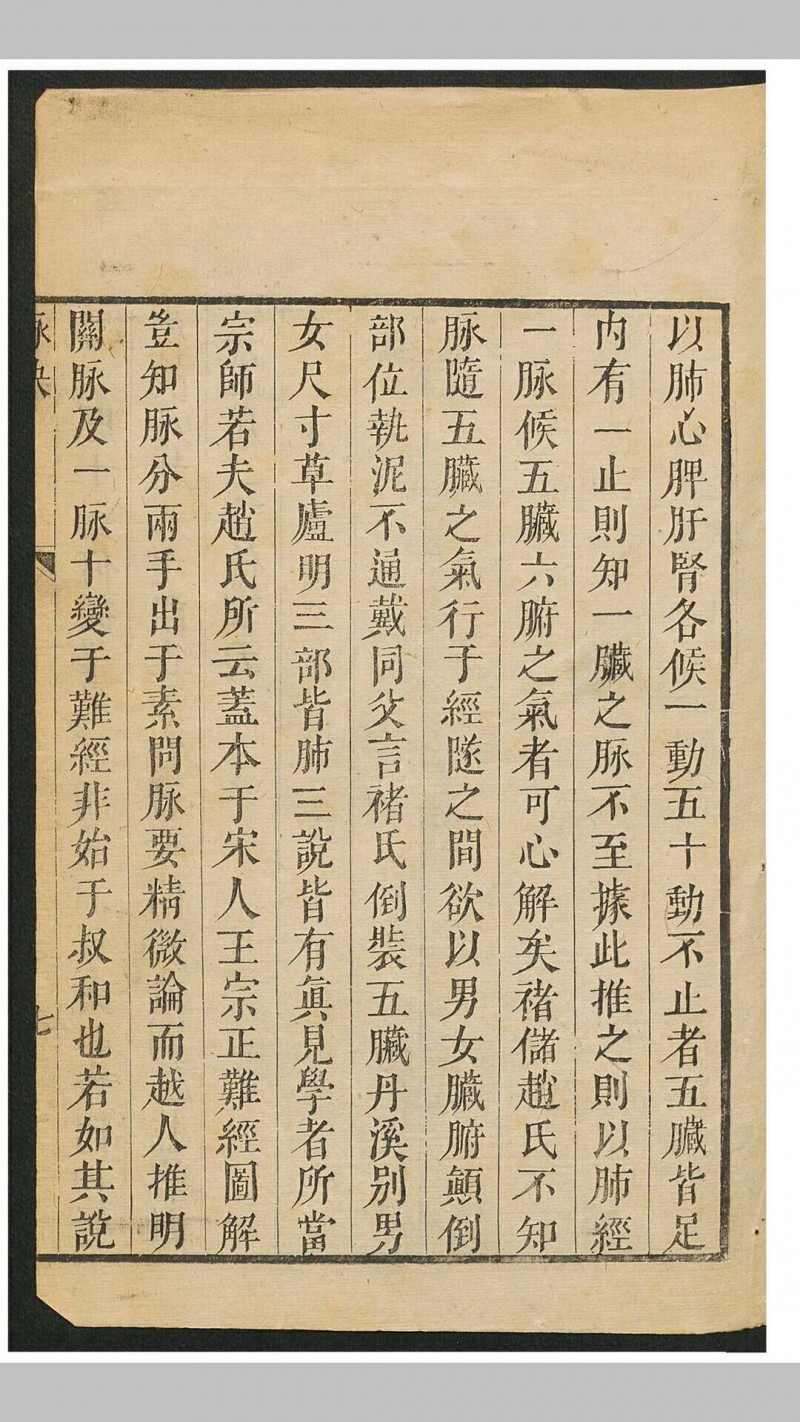 以肺心脾肝腎各候一動五十動不止者五臟皆足
内有一止則知一臟之脉不至據此推之則以肺經
一脉候五臟六腑之氣者可心解矣褚儲趙氏不知
脉隨五臟之氣行于經隧之間欲以男女臟腑顛倒
部位執泥不通戴同父言褚氏倒裝五臟丹溪别男
女尺寸草廬明三部皆肺三說皆有眞見學者所當
宗師若夫趙氏所云蓋本于宋人王宗正難經圖解
豈知脉分兩手出于素問脉要精微論而越人推明
關脉及一脉十變于難經非始于叔和也若如其說
脉决
七